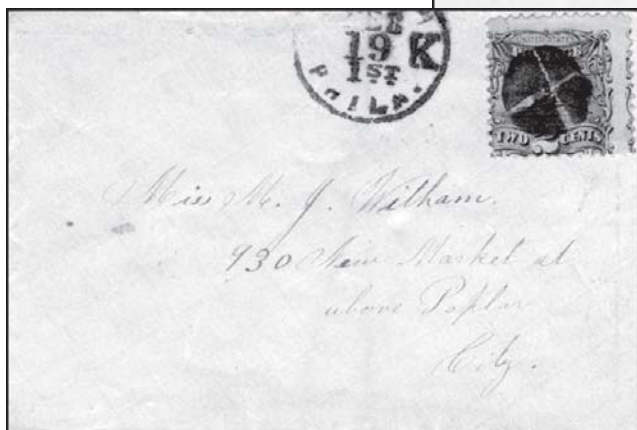 FEB
19 K
1ST
PHILA.
UNITED STATES
TWO CENTS
Miss M. J. Witham.
930 New Market st
above Poplar
City.